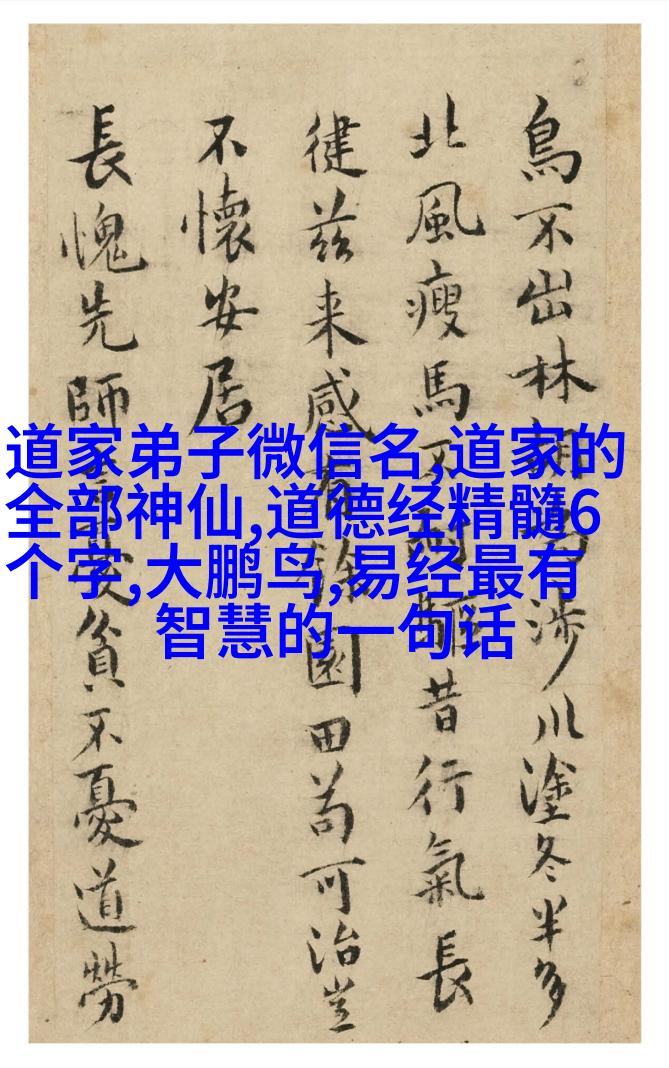 鳥不出林胡涉川塗冬半多
北風瘦馬驅昔行氣長
健茲来感園田苟可治豈
不懷安居
長愧先師貧不憂道勞
道家弟子微信名,道家的
全部神仙,道德经精髓6
个字,大鹏鸟,易经最有
智慧的一句话